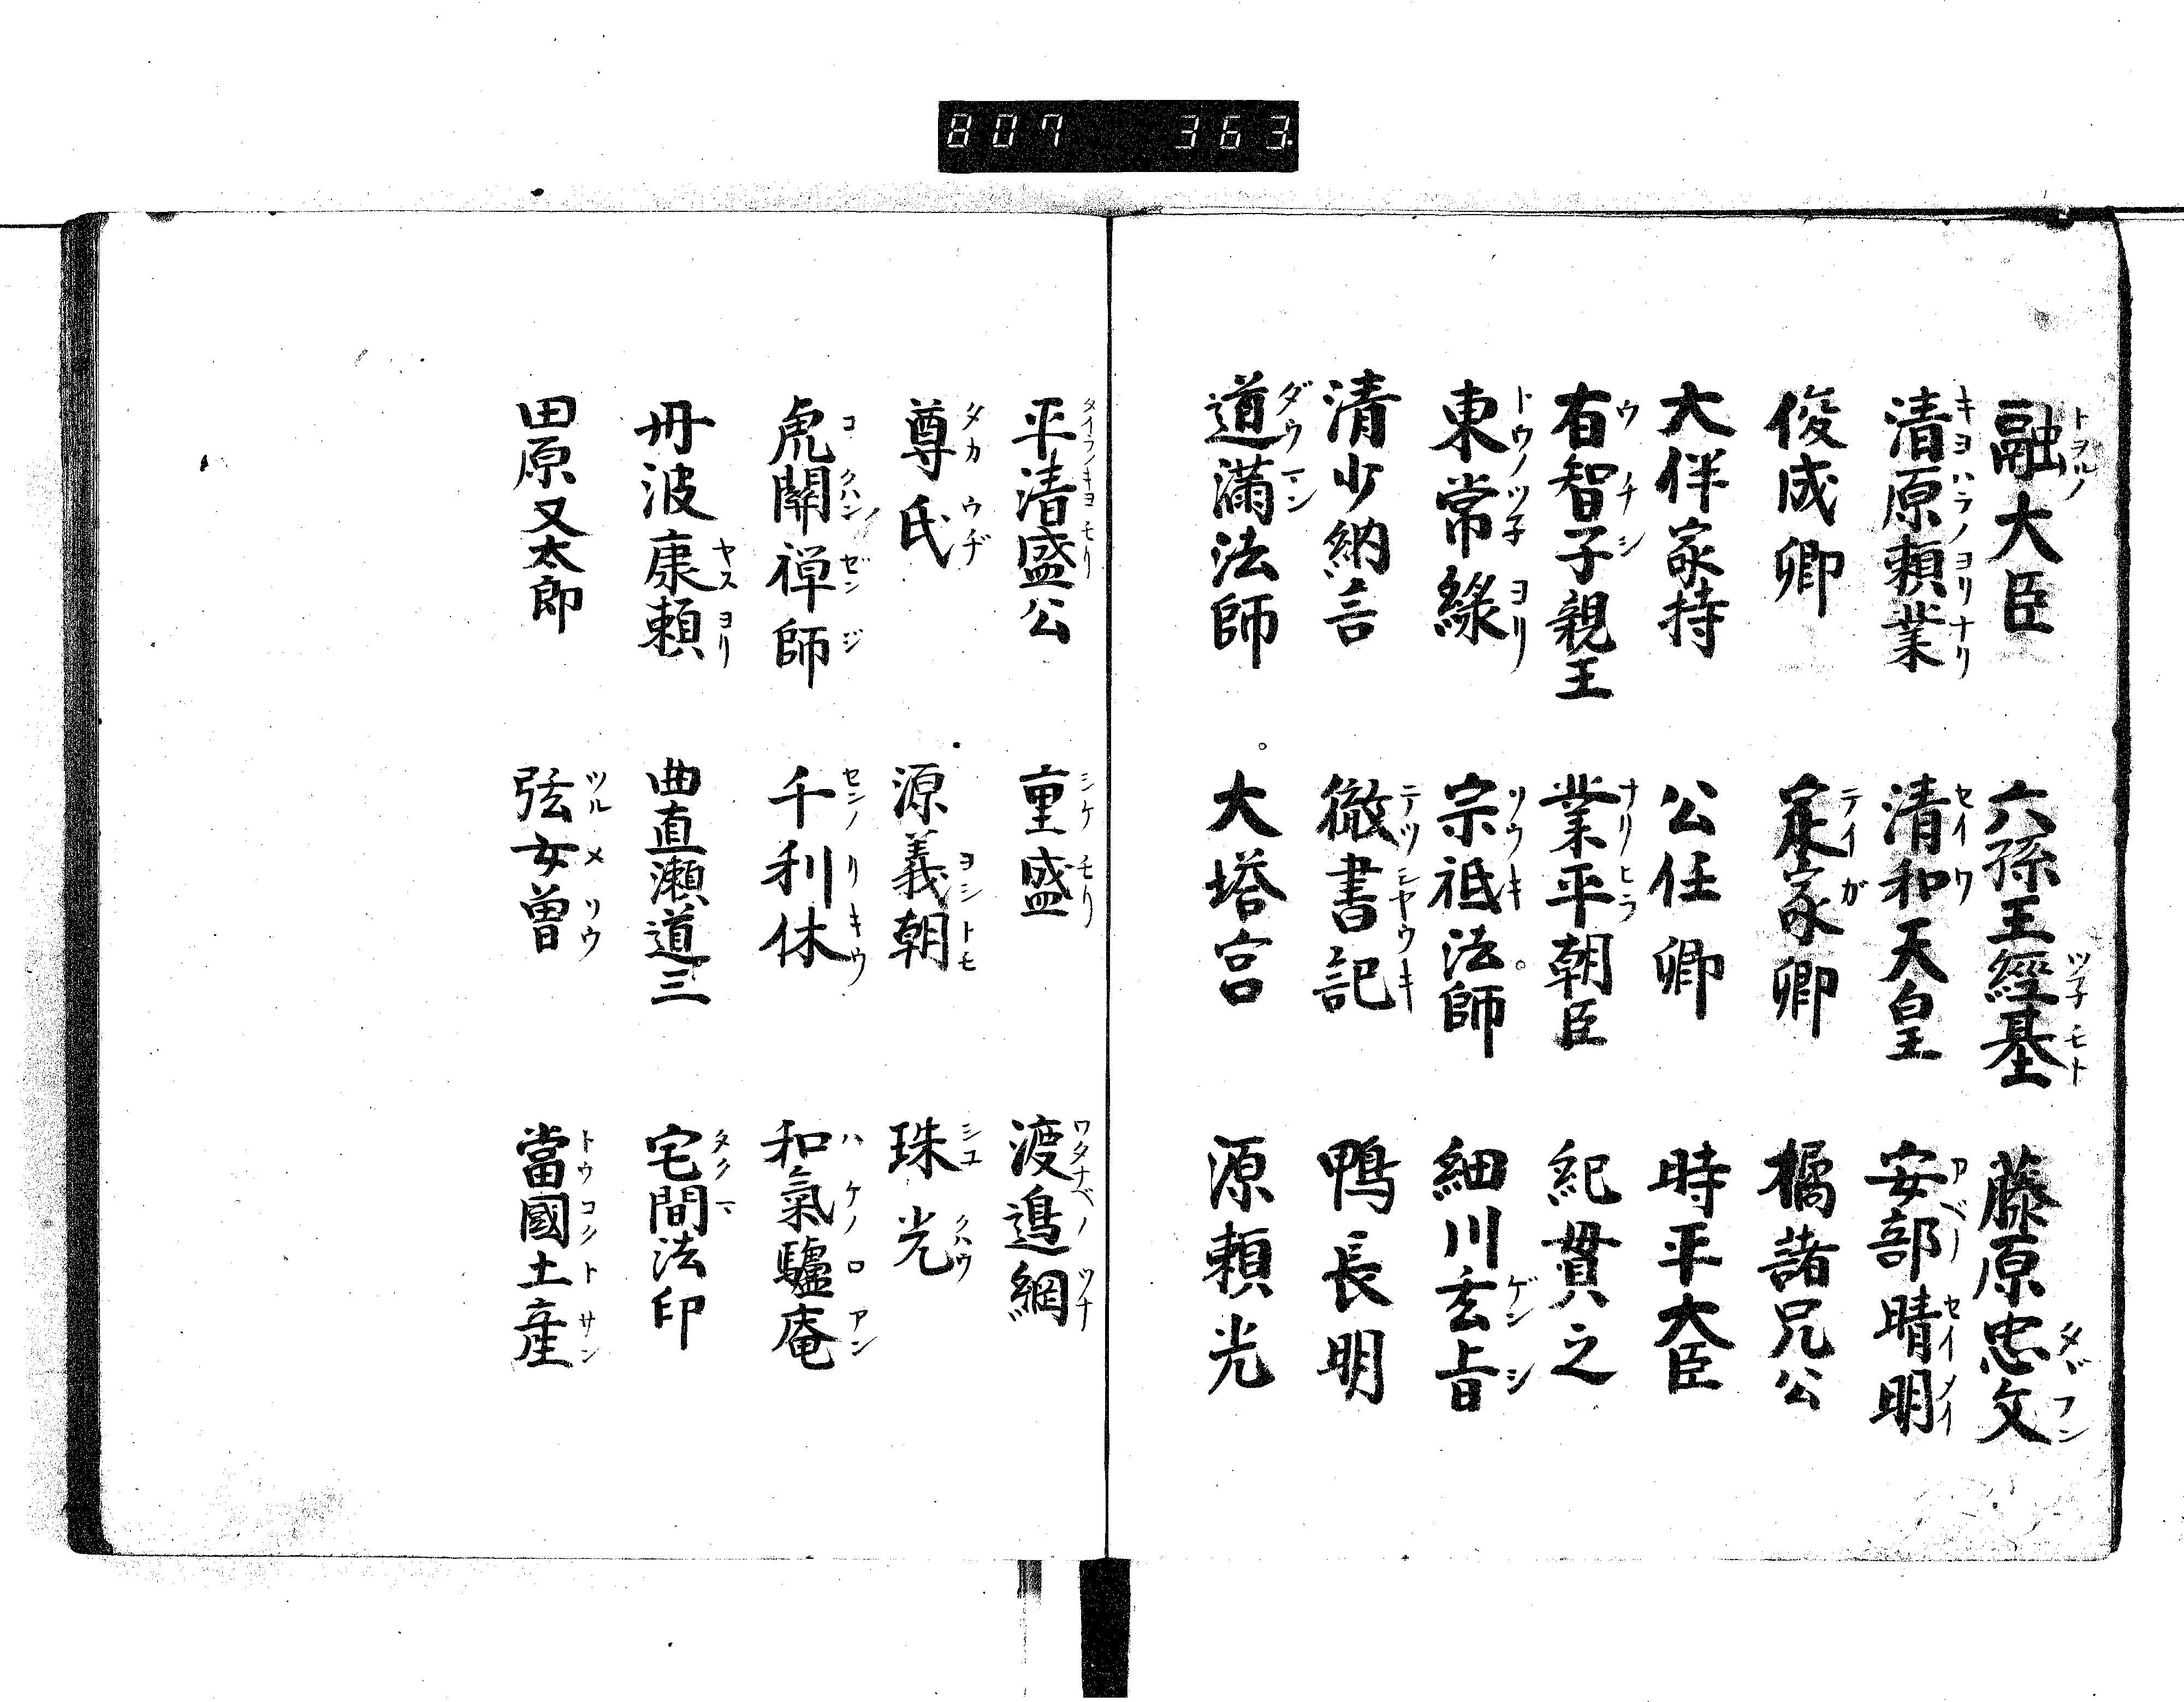 807 363.
融大臣 六孫王經基 藤原忠文
清原頼業 清和天皇 安部晴明
俊成卿 定家卿 橘諸兄公
大伴家持 公任卿 時平大臣
有智子親王 業平朝臣 紀貫之
東常縁 宗祗法師 細川玄旨
清少納言 徹書記 鴨長明
道滿法師 大塔宮 源頼光
平清盛公 重盛 渡邉綱
尊氏 源義朝 珠光
虎關禅師 千利休 和氣驢庵
丹波康頼 曲直瀬道三 宅間法印
田原又太郎 弦女曽 當國土産